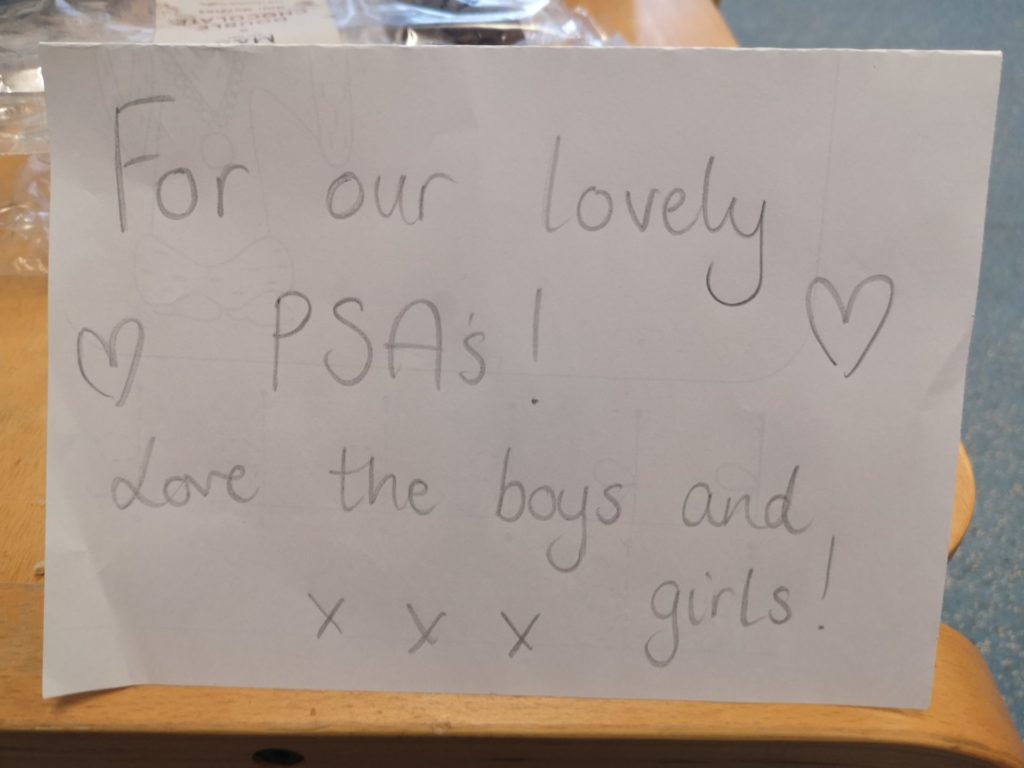 For our lovely
PSA's!
Love the boys and
girls!
x x x
CHOCOLATE